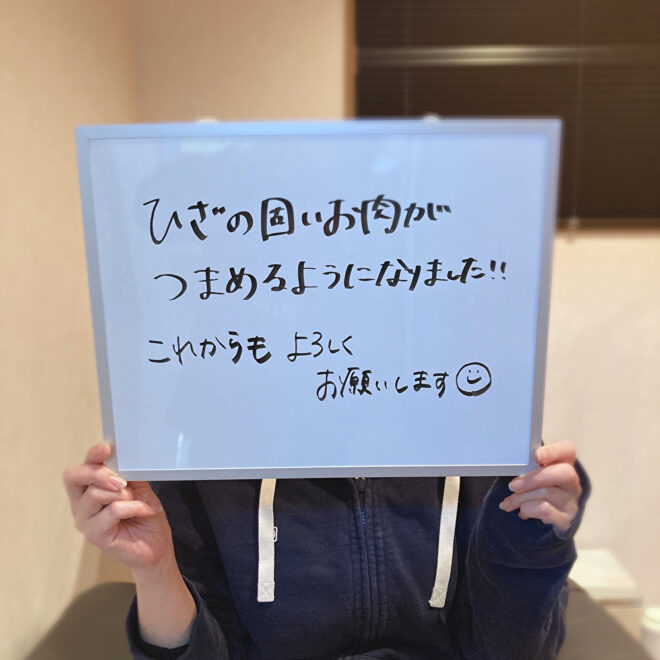 ひざの固いお肉が
つまめるようになりました!!
これからも よろしく
お願いします